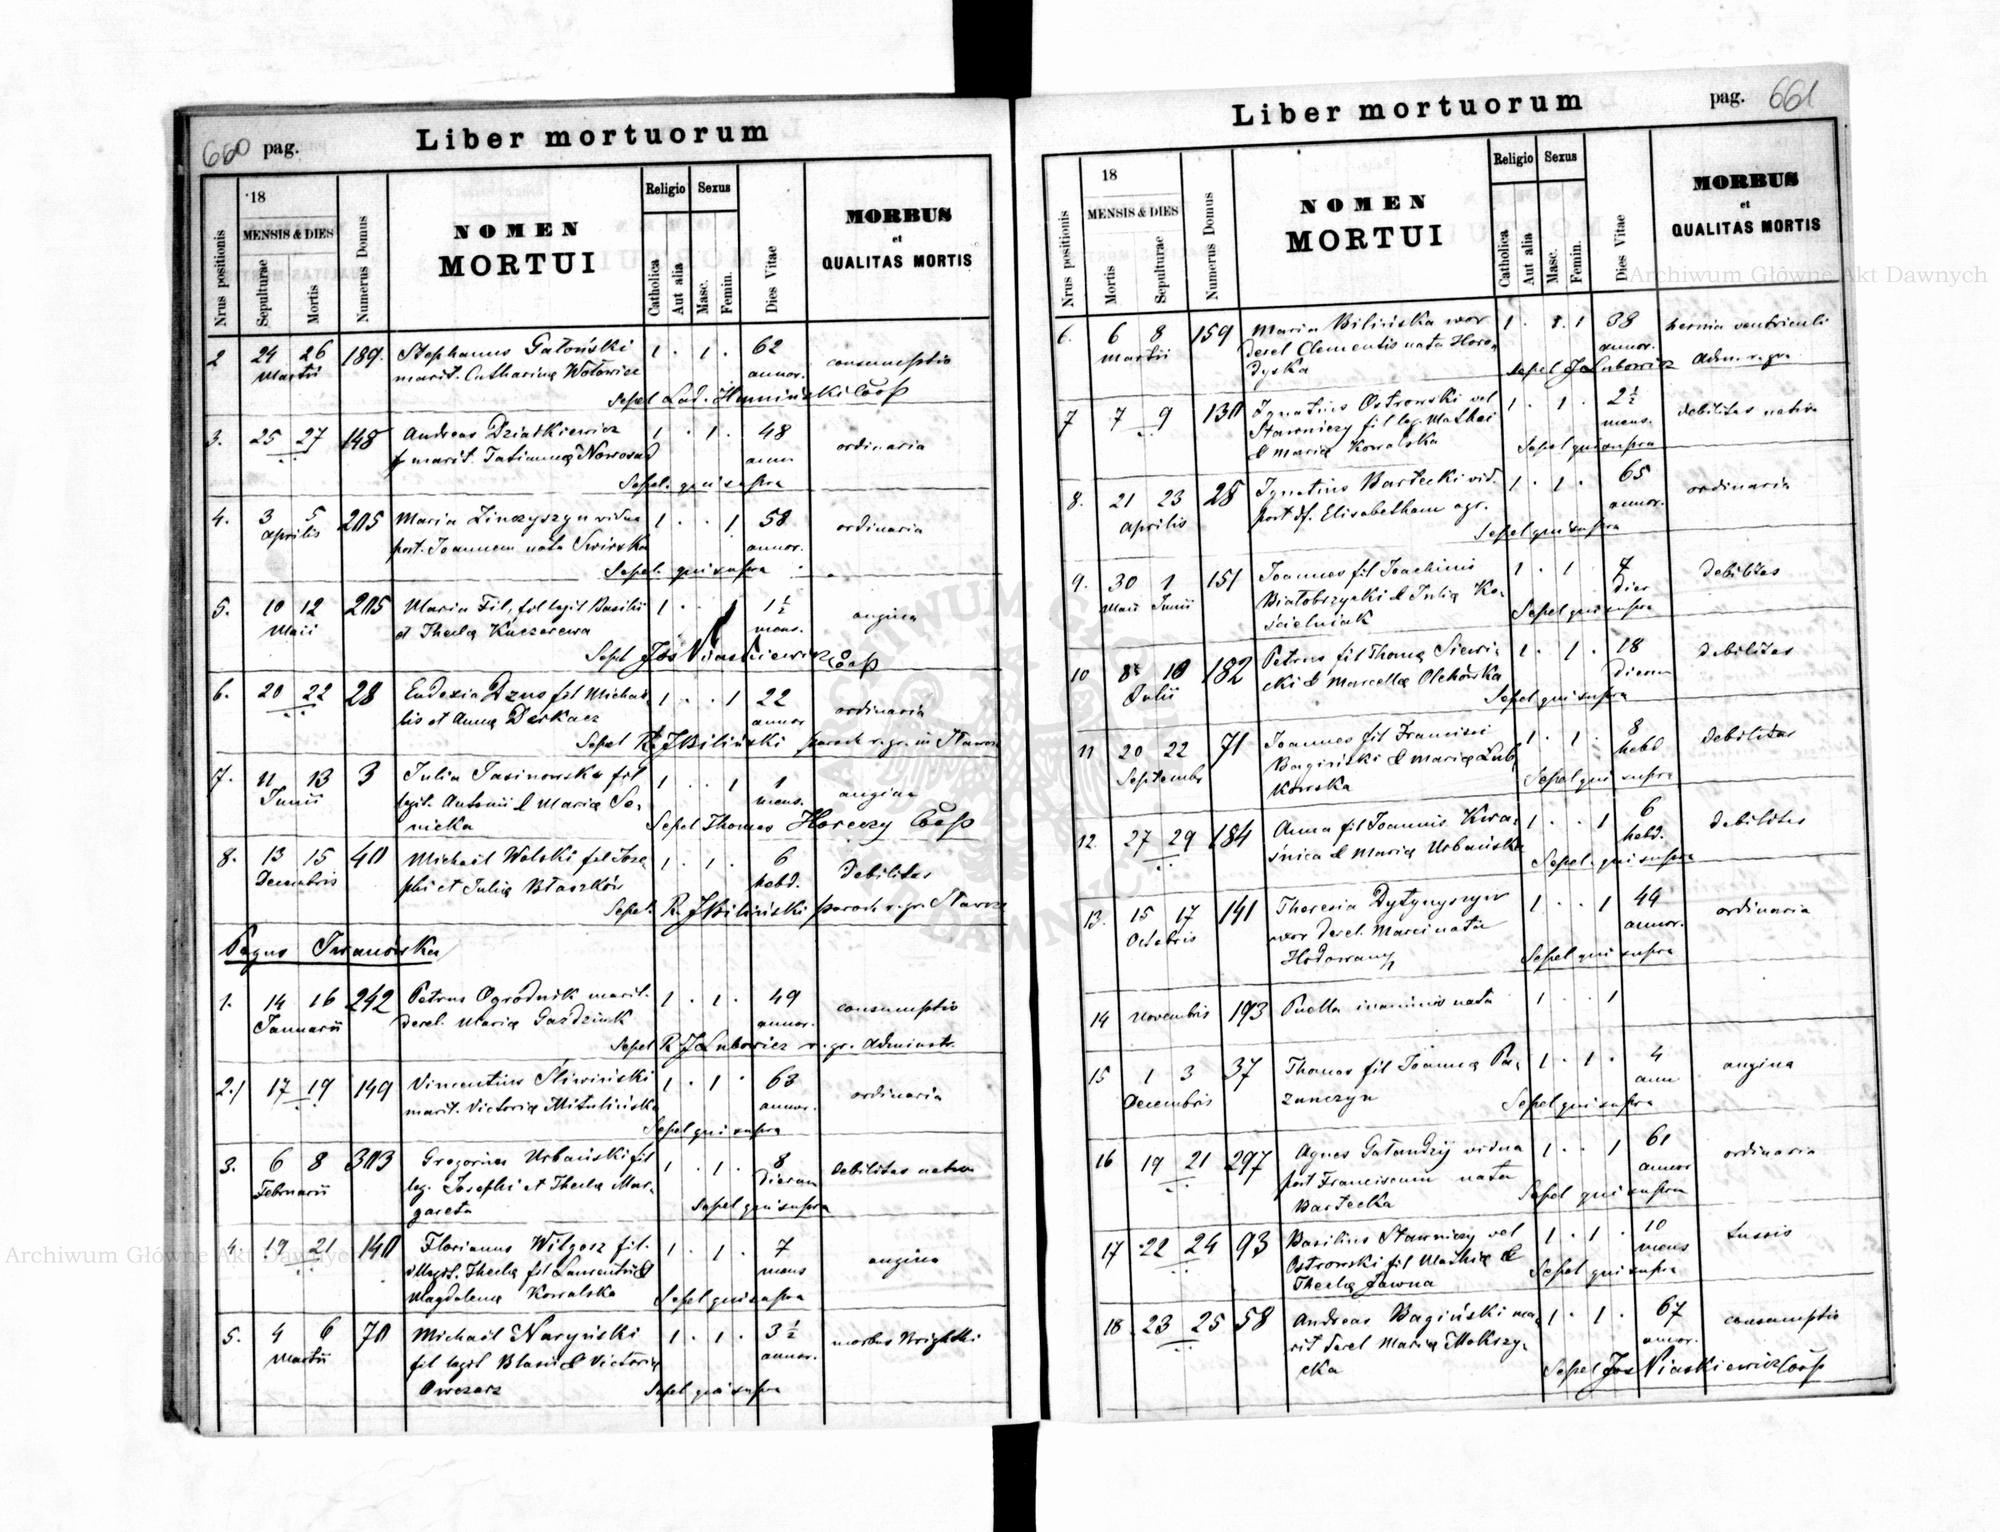 660 pag. Liber mortuorum
Nrus positionis
18
MENSIS & DIES
Sepulturae
Mortis
Numerus Domus
NOMEN
MORTUI
Religio
Catholica
Aut alia
Sexus
Masc.
Femin.
Dies Vitae
MORBUS
et
QUALITAS MORTIS
2 24 26 189. Stephanus Gałoński 1 . 1 . 62 consumptio
Martii marit. Catharina Wołowicz annor.
Sepel Lad. Humiński Coop
3. 25 27 148 Andreas Dziadkiewicz 1 . 1 . 48 ordinaria
marit. Tatianna Nowosad ann
Sepel. qui supra
4. 3 5 205 Maria Zinczyszyn vidua 1 . . 1 58 ordinaria
Aprilis post. Joannem nata Swirska annor.
Sepel. qui supra
5. 10 12 205 Maria Fil, fil legit Basilii 1 . . 1 1½ angina
Maii et Thecla Kuczerewa mens.
Sepel Jos Niaskiewicz Coop
6. 20 22 28 Eudoxia Dzus fil Michae- 1 . . 1 22 ordinaria
lis et Anna Derkacz annor
Sepel R. J Biliński paroch r. gr. in
7. 11 13 3 Julia Jasinowska fil 1 . . 1 1 angina
Junii legit. Antonii & Maria Se- mens.
nicka Sepel Thomas Horeczy Coop
8. 13 15 40 Michail Wolski fil Jose- 1 . 1 . 6 debilitas
Decembris phi et Julia Błaszków hebd.
Sepel. R. J Biliński paroch r. gr.
Pagus Iwanówka
1. 14 16 242 Petrus Ogrodnik marit. 1 . 1 . 49 consumptio
Januarii derel. Maria Gazdziuk annor.
Sepel R J Lubowicz r. gr. Administr.
2.) 17 19 149 Vincentius Śliwiński 1 . 1 . 63 ordinaria
marit. Victoria Mitulińska annor.
Sepel qui supra
3. 6 8 303 Gregorius Urbański fil 1 . 1 . 8 debilitas nativa
Februarii leg. Josephi et Thecla Mar- dierum
gareta Sepel qui supra
4 19 21 140 Florianus Witgosz fil. 1 . 1 . 7 angina
illegit. Thecla fil Laurentii & mens
Magdalena Kowalska Sepel qui supra
5. 4 6 70 Michail Naryński 1 . 1 . 3½ morbus Brightki
Martii fil legit Blasii & Victoria annor.
Owczarz Sepel qui supra
Liber mortuorum pag. 661
Nrus positionis
18
MENSIS & DIES
Mortis
Sepulturae
Numerus Domus
NOMEN
MORTUI
Religio
Catholica
Aut alia
Sexus
Masc.
Femin.
Dies Vitae
MORBUS
et
QUALITAS MORTIS
6. 6 8 159 Maria Bilińska uxor 1 . . 1 38 hernia ventriculi
Martii derel Clementis nata Horo- annor.
dyska Sepel J Lubowicz Adm. r. gr.
7 7 9 130 Ignatius Ostrowski vel 1 . 1 . 2½ debilitas nativa
Stawniczy fil leg. Mathei mens.
& Maria Kowalska Sepel qui supra
8. 21 23 28 Ignatius Bartecki vid. 1 . 1 . 65 ordinaria
Aprilis post df. Elisabetham agr. annor.
Sepel qui supra
9. 30 1 151 Joannes fil Joachimi 1 . 1 . 7 debilitas
Maii Junii Białobrzycki & Julia Ko- dier
ścielniak Sepel qui supra
10 8 10 182 Petrus fil Thoma Siewi- 1 . 1 . 18 debilitas
Julii cki & Marcella Olchówka dierum
Sepel qui supra
11 20 22 71 Joannes fil Francisci 1 . 1 . 8 debilitas
Septembr Bagiński & Maria Lub- hebd
kowska Sepel qui supra
12. 27 29 184 Anna fil Joannis Kwa- 1 . . 1 6 debilitas
śnica & Maria Urbańska hebd.
Sepel. qui supra
13. 15 17 141 Theresia Dytynyszyn 1 . . 1 44 ordinaria
Octobris uxor derel. Marci nata annor.
Hodowany Sepel qui supra
14 Novembris 193 Puella inanimis nata 1 . . 1
15 1 3 37 Thomas fil Joanna Pa- 1 . 1 . 4 angina
Decembris zunczyn ann
Sepel qui supra
16 19 21 297 Agnes Gałandzij vidua 1 . . 1 61 ordinaria
post Franciscum nata annor
Bartecka Sepel qui supra
17 22 24 93 Basilius Stawniczy vel 1 . 1 . 10 tussis
Ostrowski fil Mathia & mens
Thecla Jawna Sepel qui supra
18 23 25 58 Andreas Bagiński ma- 1 . 1 . 67 consumptio
rit derel Maria Mokszy- annor.
cka Sepel Jos Niaskiewicz Coop
Archiwum Główne Akt Dawnych
Archiwum Główne Akt Dawnych
ARCHIWUM GŁÓWNE AKT DAWNYCH